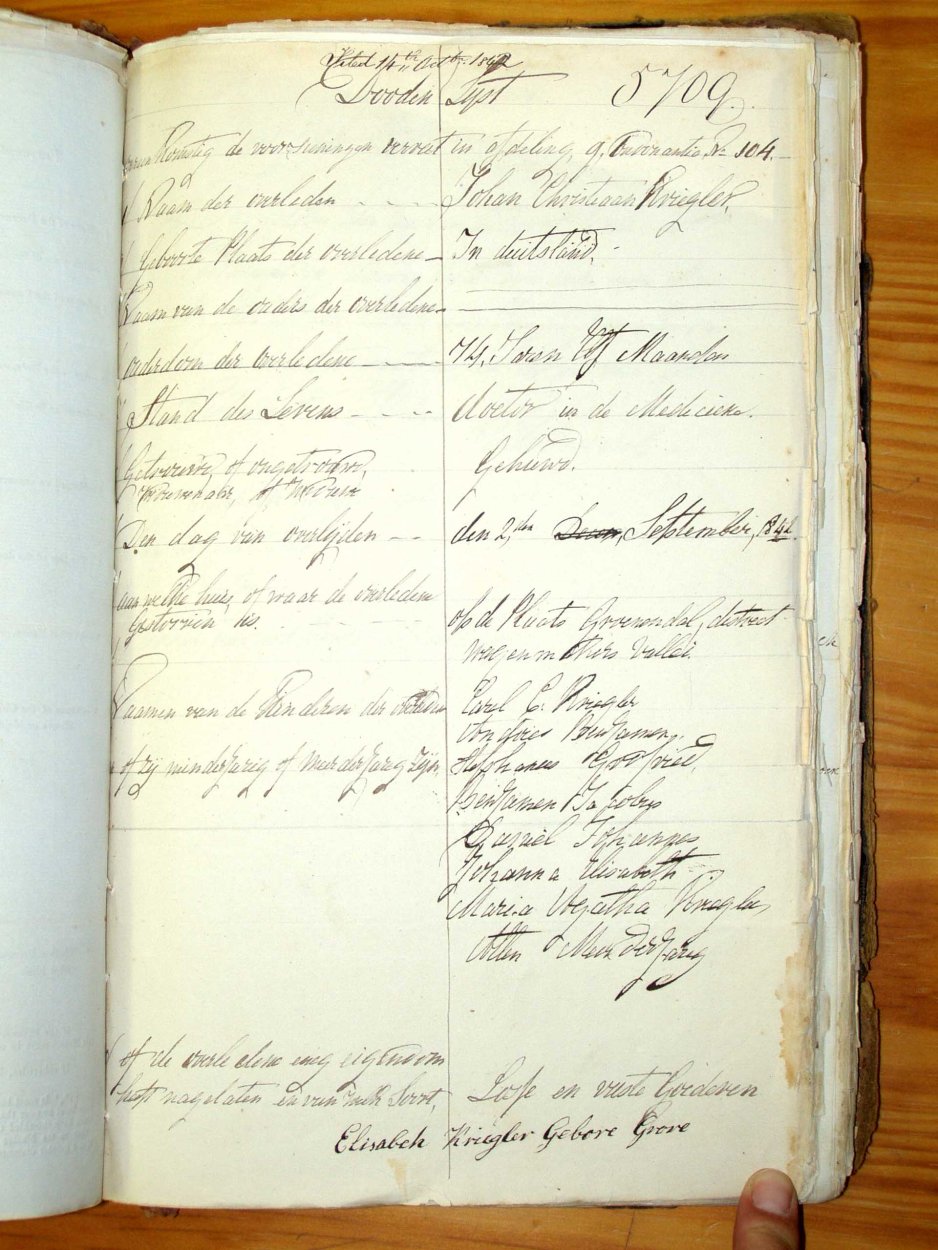 Filed 14th Octbr. 1842
Dooden Lyst 5709.
de voorschriningen vervat in afdeling 9, Ordonantie No 104.
Naam der overleden Johan Christiaan Kriegler.
Geboorte Plaats der overledene In duitsland.
Naam van de ouders der overledene
ouderdom der overledene 74, Jaren Elf Maanden
Stand des Levens doctor in de Medicieне.
Getrouwd, of ongetrouwd, Gehuwd.
Weduwe
Den dag van overlijden den 2,den September, 1842.
aan welke huis, of waar de overledene
Gestorven is. op de Plaats Groenendal, distrect
wagenmakers Vallei.
Naamen van de Kinderen der overledene Carel C. Kriegler
Andries Benjamen,
of zij minderjarig of meerderjarig zijn, Stephanus Gotfried,
Benjamen Jakobus
Daniel Johannes
Johanna Elisabeth
Maria Agatha Kriegler
Allen Meerderjarig
of de overledene enig eigendom
heeft nagelaten en van welk Soort, Losse en vaste Goederen
Elisabeh Kriegler Gebore Grove